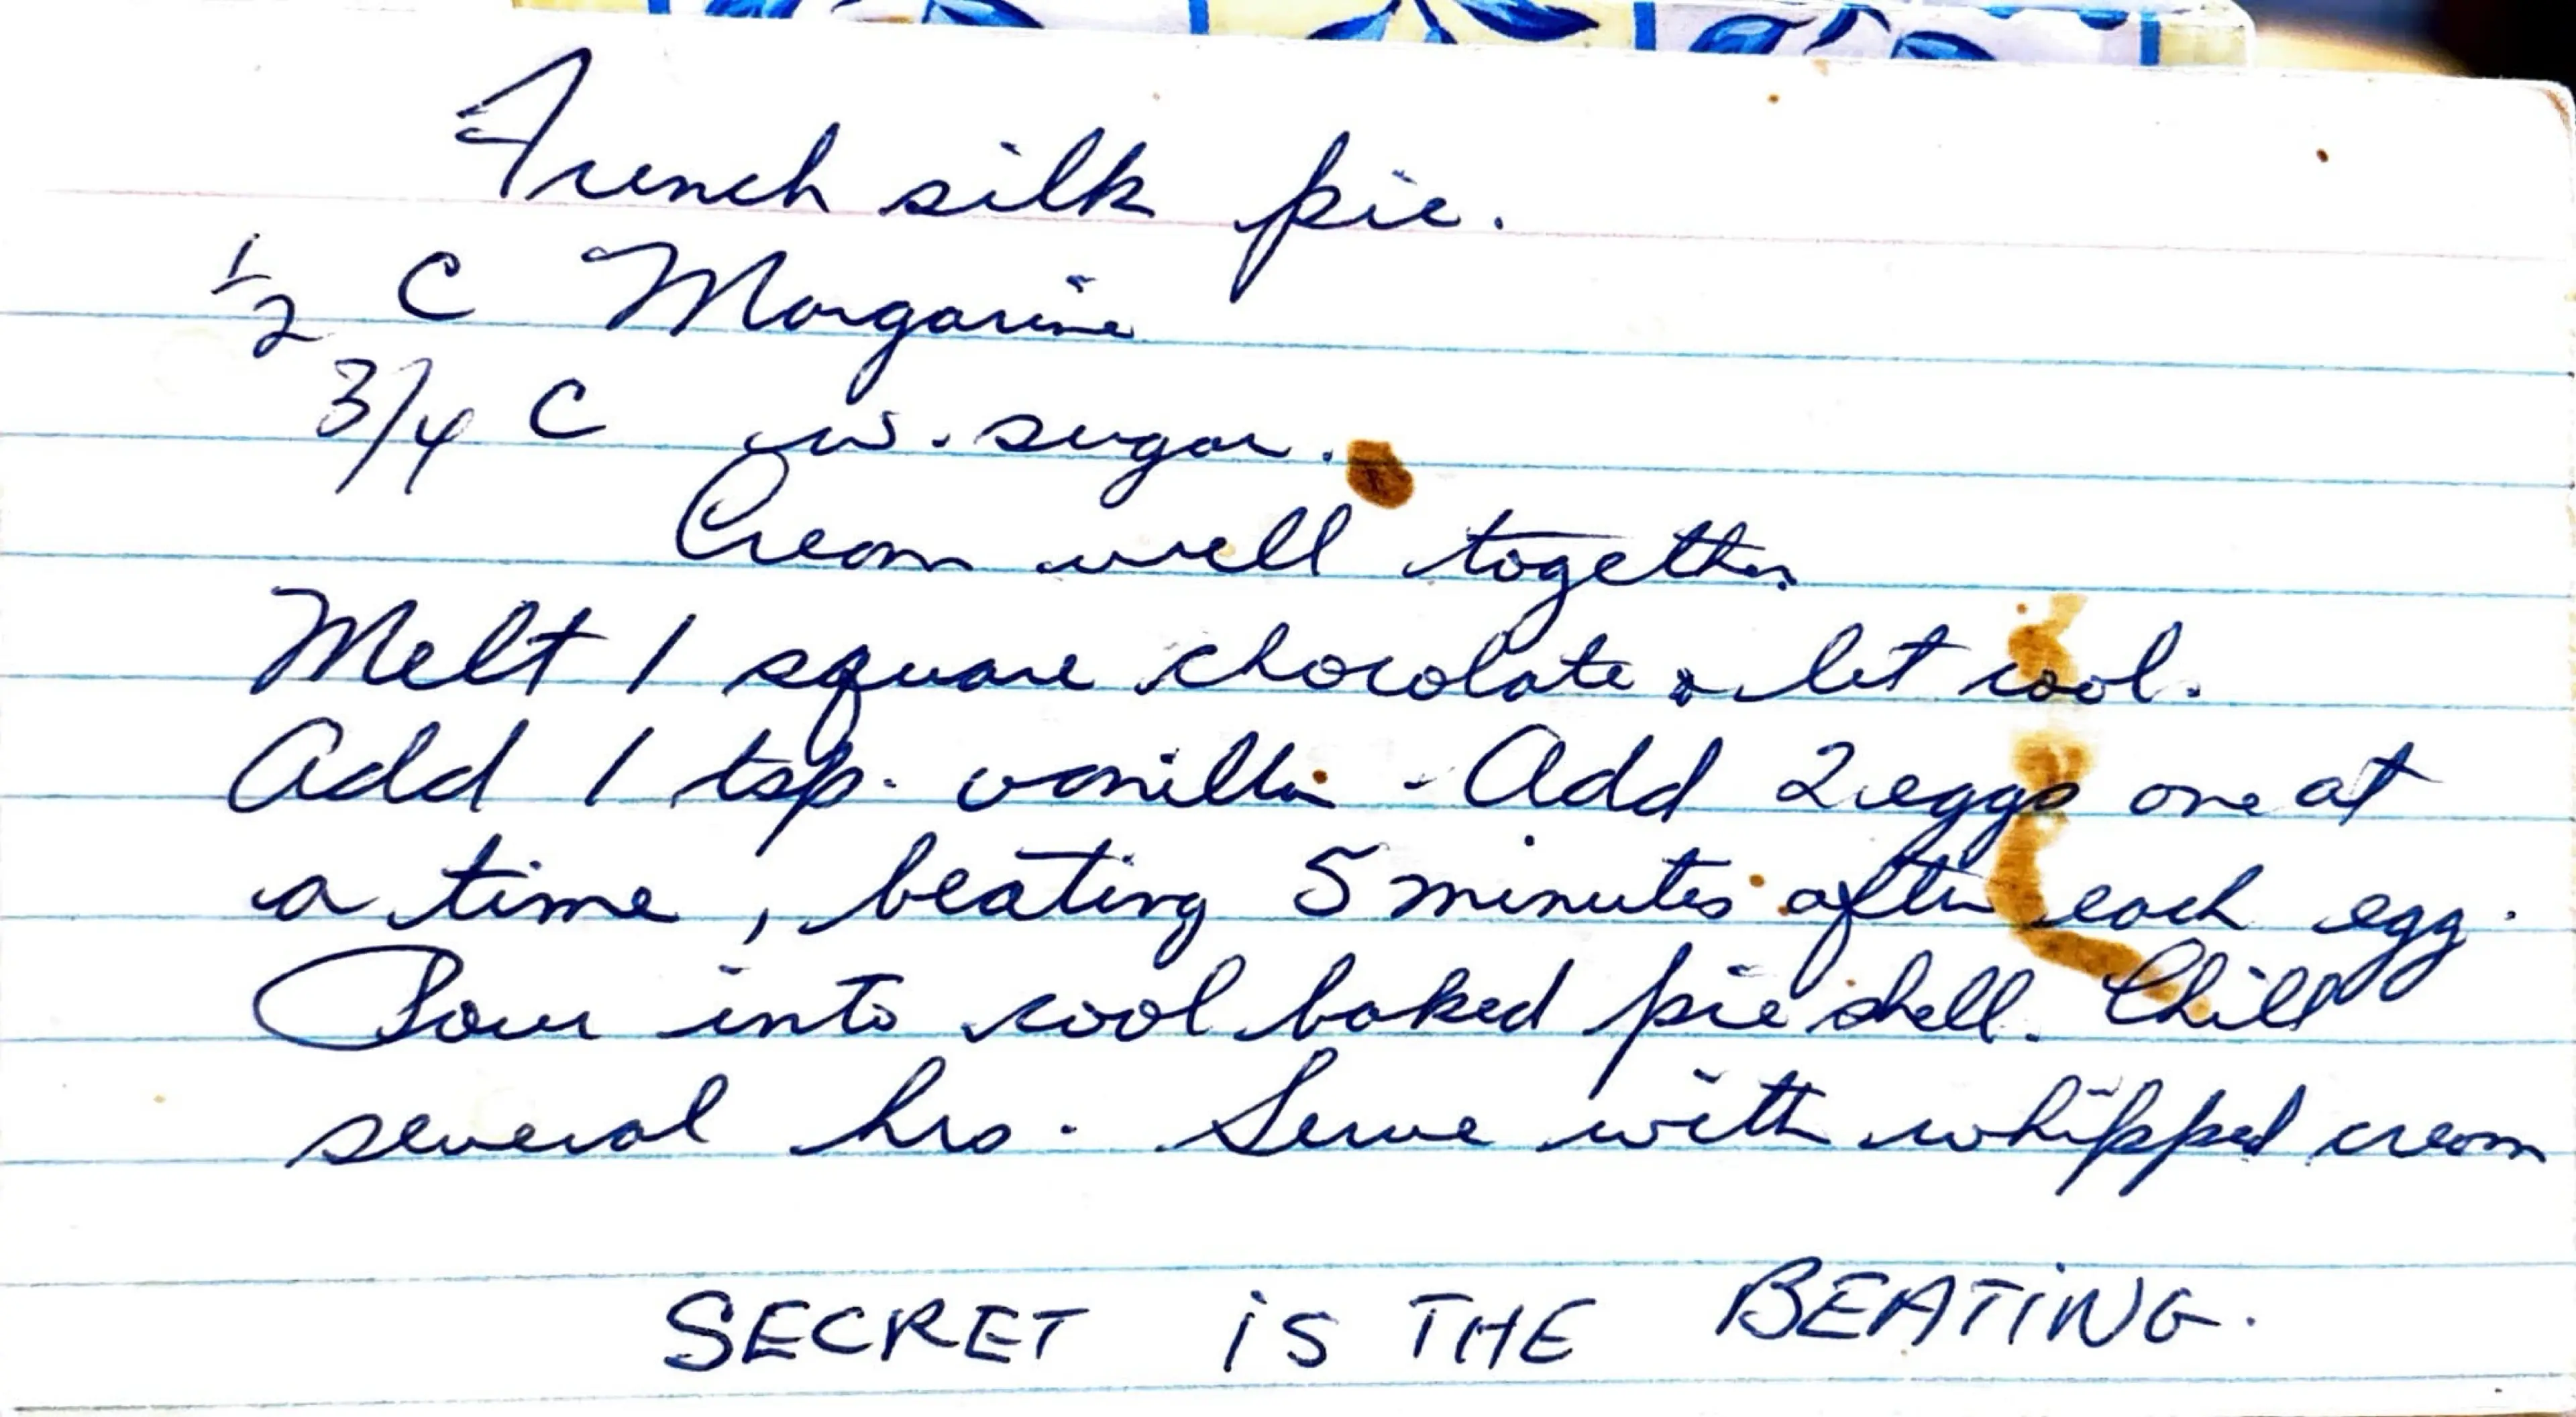 French silk pie.
1/2 C Margarine
3/4 C w. sugar.
Cream well together
Melt 1 square chocolate & let cool.
Add 1 tsp. vanilla - Add 2 eggs one at
a time, beating 5 minutes after each egg.
Pour into cool baked pie shell. Chill
several hrs. Serve with whipped cream
SECRET iS THE BEATiNG.